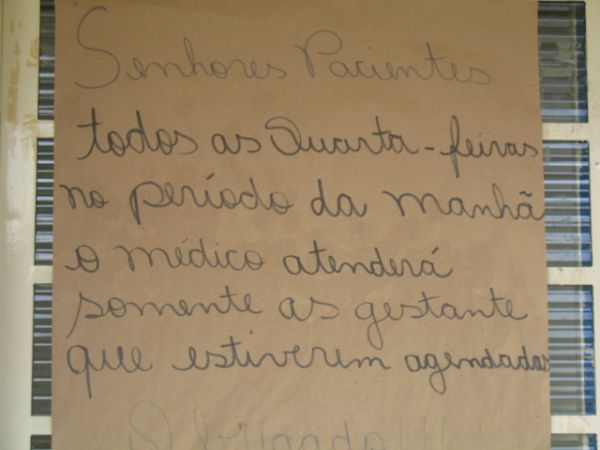 Senhores Pacientes
todos as Quarta-feiras
no período da manhã
o médico atenderá
somente as gestante
que estiverem agendadas
Obrigado!